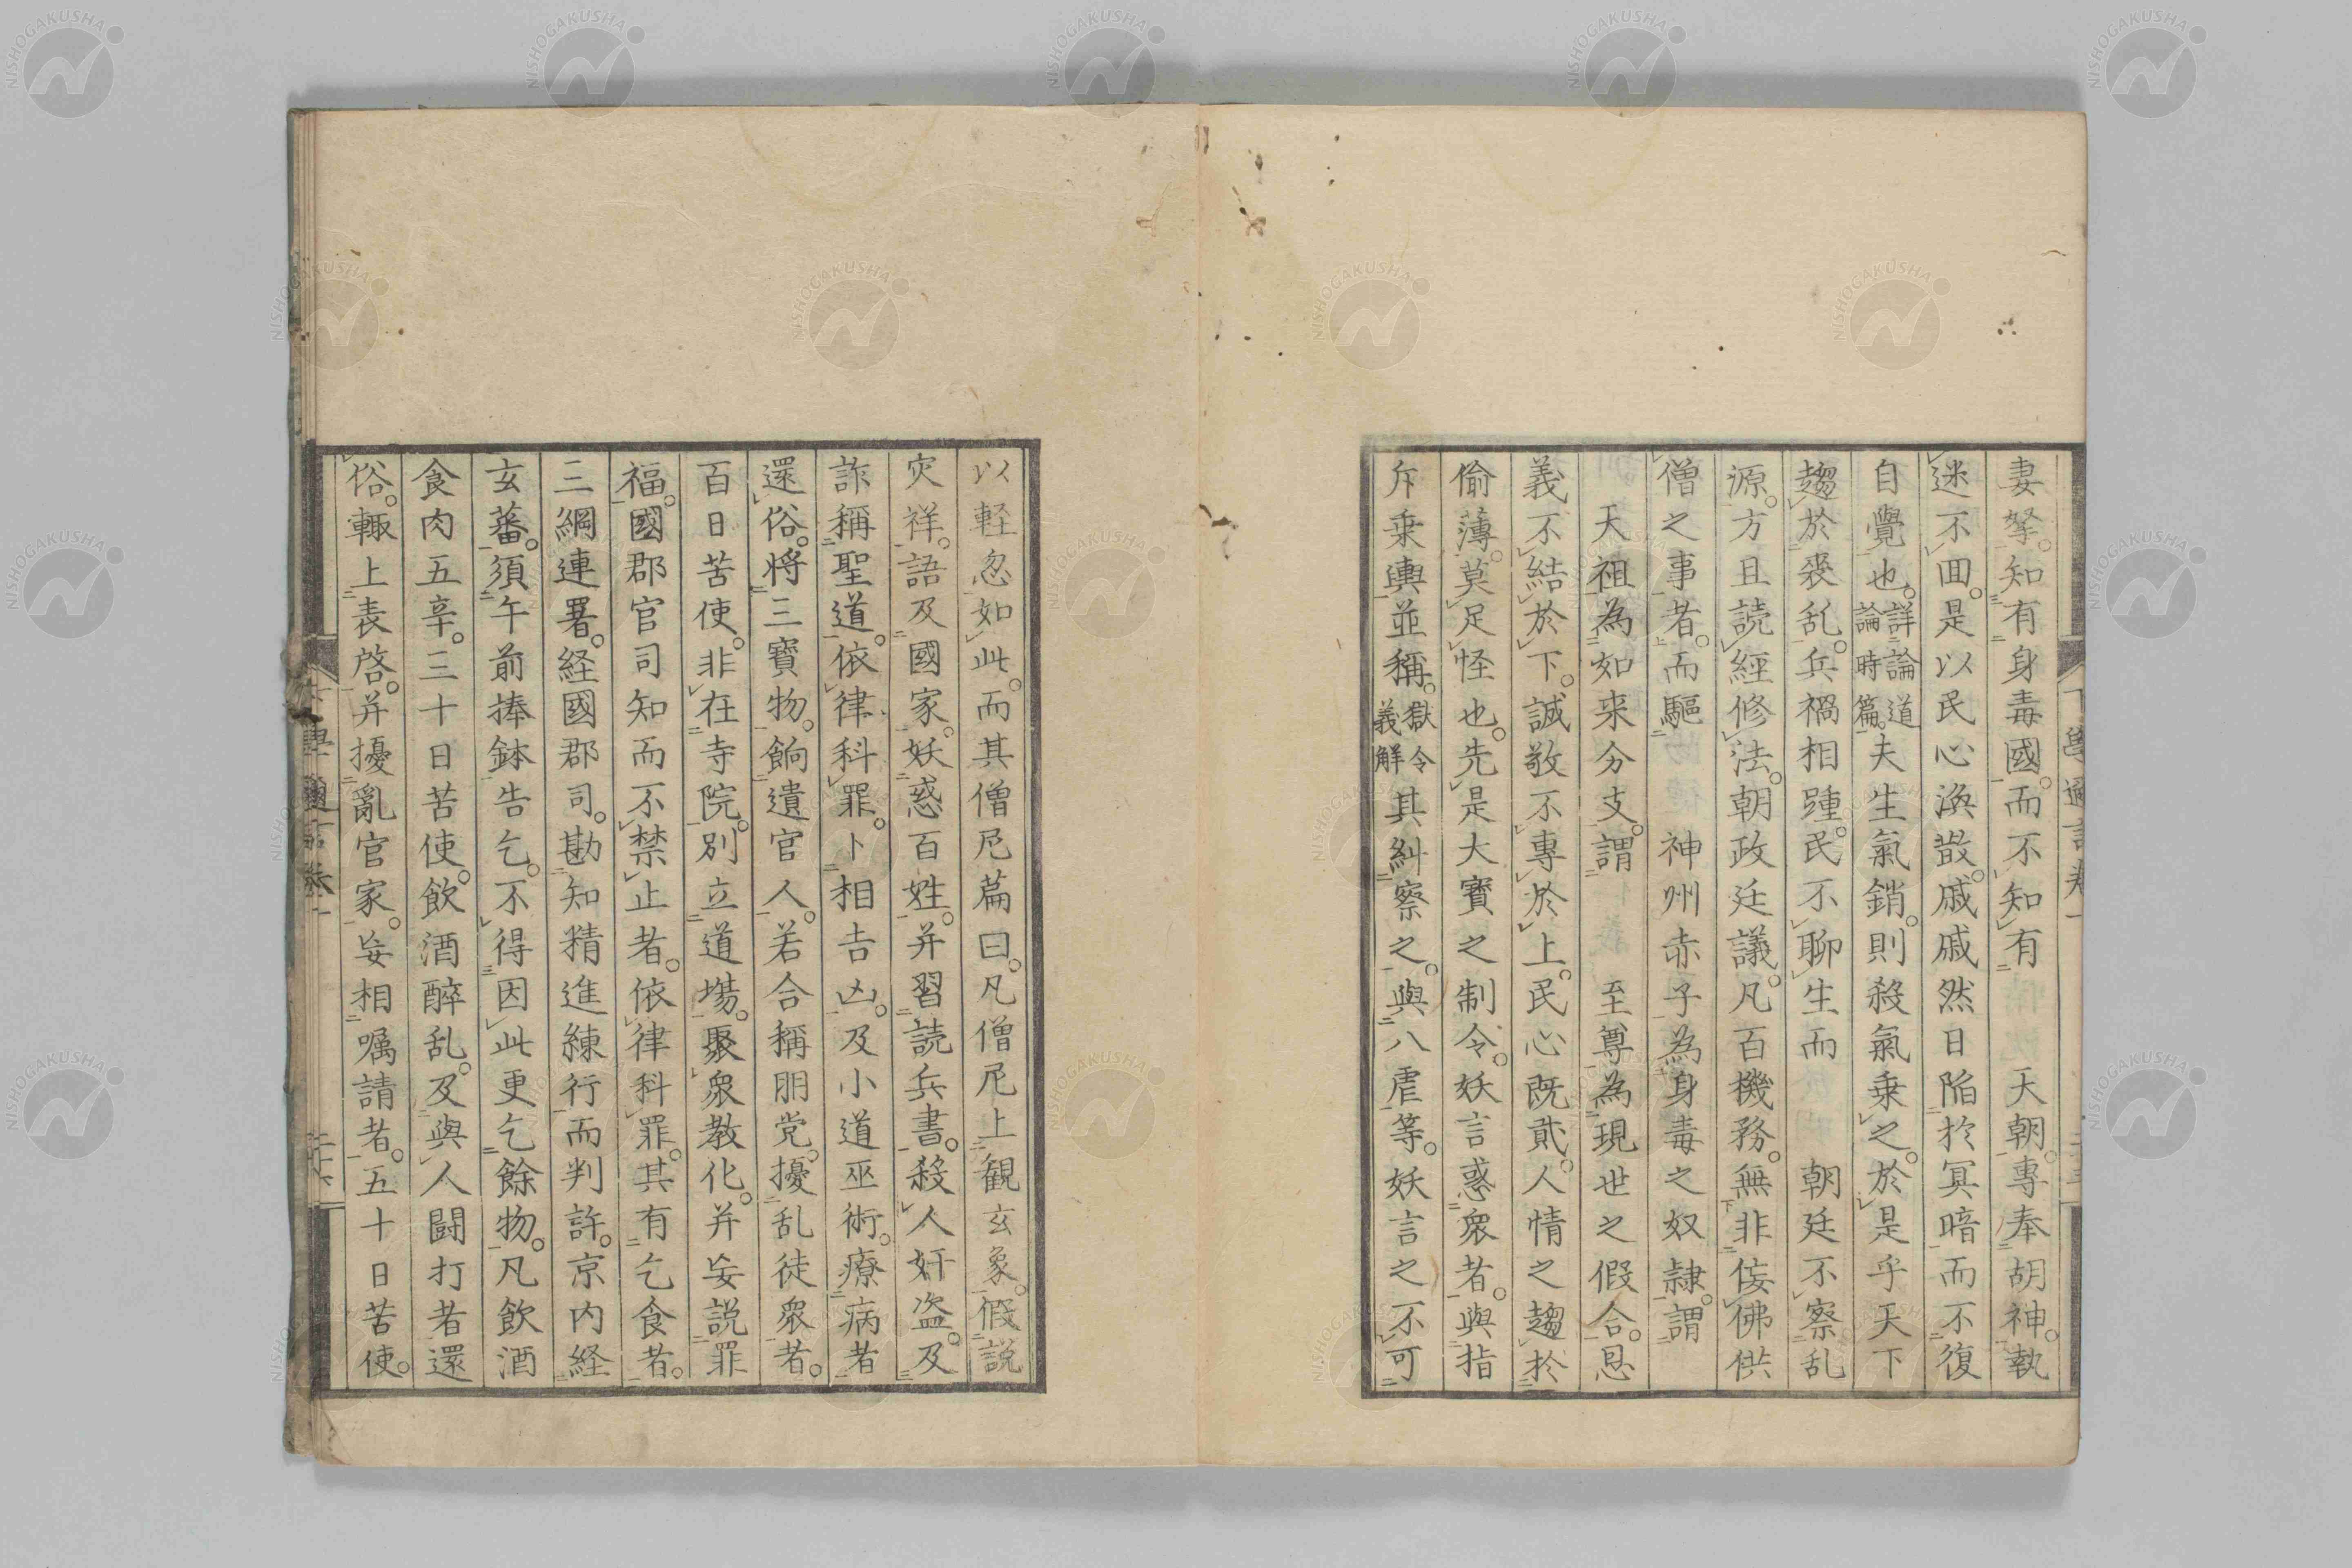 妻孥。知有身毒國。而不知有　天朝。專奉胡神。執
迷不囬。是以民心渙散。戚戚然日陥於冥暗而不復
自覺也。詳論道論時篇。夫生氣銷。則殺氣乗之。於是乎天下
趨於衰乱。兵禍相踵。民不聊生而　朝廷不察乱
源。方且読經修法。朝政廷議。凡百機務。無非侫佛供
僧之事者。而驅　神州赤子為身毒之奴隷。謂
天祖為如来分支。謂　至尊為現世之假合。恩
義不結於下。誠敬不專於上。民心既貮。人情之趨於
偷薄。莫足怪也。先是大寶之制令。妖言惑衆者。與指
斥乗輿並稱。獄令義解其糾察之。與八虐等。妖言之不可
以軽忽如此。而其僧尼篇曰。凡僧尼上観玄象。假説
灾祥。語及國家。妖惑百姓。并習読兵書。殺人奸盗。及
詐稱聖道。依律科罪。卜相吉凶。及小道巫術。療病者
還俗。将三寳物。餉遺官人。若合稱朋党。擾乱徒衆者。
百日苦使。非在寺院。別立道塲。聚衆教化。并妄説罪
福。國郡官司知而不禁止者。依律科罪。其有乞食者。
三綱連署。経國郡司。勘知精進練行。而判許。京内経
玄蕃。須午前捧鉢告乞。不得因此更乞餘物。凡飲酒
食肉五辛。三十日苦使。飲酒醉乱。及與人闘打者還
俗。輙上表啓。并擾亂官家。妄相嘱請者。五十日苦使。